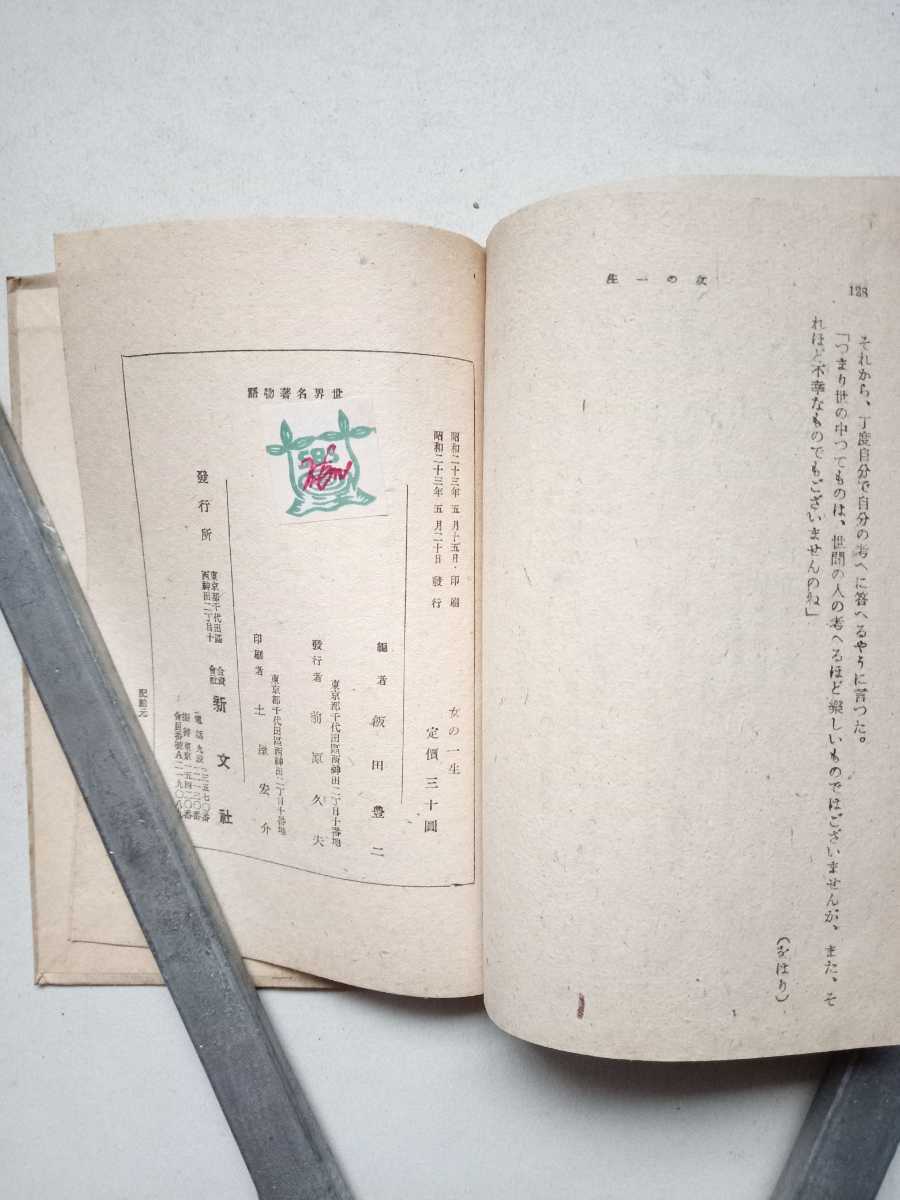 女の一生
128
それから、丁度自分で自分の考へに答へるやうに言つた。
「つまり世の中つてものは、世間の人の考へるほど樂しいものではございませんが、また、そ
れほど不幸なものでもございませんのね」
（をはり）
世界名著物語
昭和二十三年 五月十五日・印刷
昭和二十三年 五月二十日 發行
女の一生
定價 三十圓
編者 飯田豊二
東京都千代田區西神田二丁目十番地
發行者 前原久夫
東京都千代田區西神田二丁目十番地
印刷者 土屋宏介
發行所
東京都千代田區
西神田二丁目十
合資會社 新文社
電話九段
振替東京一五四二〇番
會員番號A
配給元